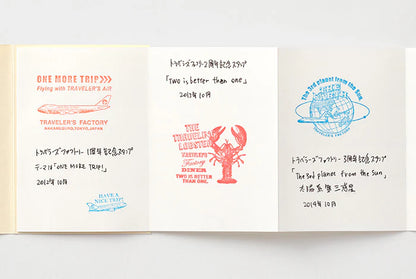 ONE MORE TRIP>>>
Flying with TRAVELER'S AIR
TRAVELER'S FACTORY
NAKAMEGURO, TOKYO, JAPAN
トラベラーズファクトリー 1周年記念スタンプ
テーマは「ONE MORE TRIP」
2012年 10月
HAVE A
NICE TRIP!
トラベラーズファクトリー2周年記念スタンプ
「Two is better than one」
2013年 10月
THE
TRAVELING
LOBSTER
TRAVELER'S
Factory
DINER
TWO IS BETTER
THAN ONE.
The 3rd planet from the Sun
TRAVELER'S FACTORY
トラベラーズファクトリー 3周年記念スタンプ
「The 3rd planet from the Sun」
太陽系第三惑星
2014年 10月